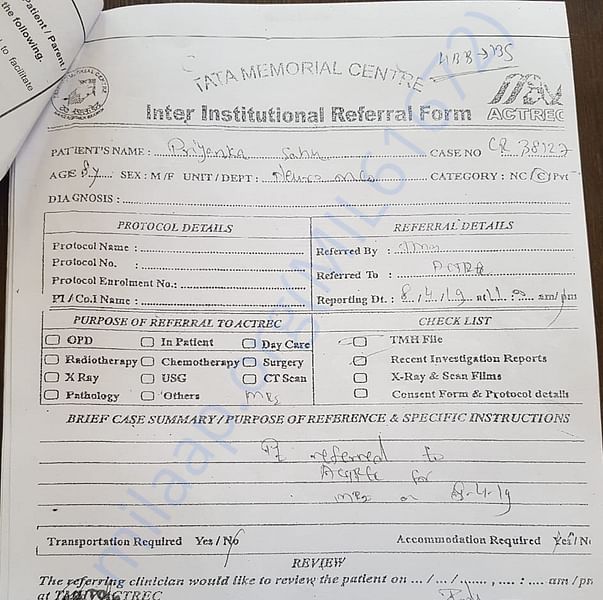 Patient / Parent /
the following.
to facilitate
TATA MEMORIAL CENTRE
Inter Institutional Referral Form
ACTREC
PATIENT'S NAME : Priyanka Sahu CASE NO CR 38127
AGE 8y SEX : M/F UNIT/DEPT : Neuro CATEGORY : NC C Pvt
DIAGNOSIS :
PROTOCOL DETAILS
Protocol Name :
Protocol No. :
Protocol Enrolment No.:
PI / Co.I Name :
REFERRAL DETAILS
Referred By :
Referred To :
Reporting Dt. : 8/4/19 at 11 am/pm
PURPOSE OF REFERRAL TO ACTREC
OPD In Patient Day Care
Radiotherapy Chemotherapy Surgery
X Ray USG CT Scan
Pathology Others
CHECK LIST
TMH File
Recent Investigation Reports
X-Ray & Scan Films
Consent Form & Protocol details
BRIEF CASE SUMMARY/PURPOSE OF REFERENCE & SPECIFIC INSTRUCTIONS
referral to
for
on 8-4-19
Transportation Required Yes / No Accommodation Required Yes / No
REVIEW
The referring clinician would like to review the patient on ... / ... / ......., .... : .... am / pm
at TMH / ACTREC
milaap.org(MIL61672)